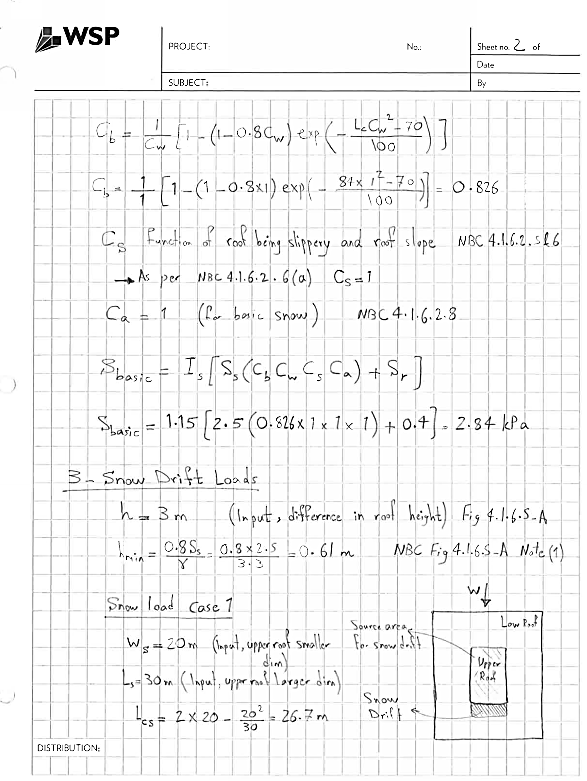 WSP
PROJECT:
No.:
Sheet no. 2 of
Date
SUBJECT:
By
C_b = 1/C_w [1 - (1-0.8C_w) exp(- (L_cC_w² - 70)/100)]
C_b = 1/1 [1 - (1 - 0.8x1) exp(- (84 x 1² - 70)/100)] = 0.826
C_s Function of roof being slippery and roof slope NBC 4.1.6.2. 5&6
→ As per NBC 4.1.6.2.6(a) C_s = 1
C_a = 1 (for basic snow) NBC 4.1.6.2.8
S_basic = I_s [S_s (C_b C_w C_s C_a) + S_r]
S_basic = 1.15 [2.5 (0.826 x 1 x 1 x 1) + 0.4] = 2.84 kPa
3- Snow Drift Loads
h = 3 m (Input, difference in roof height) Fig 4.1.6.5-A
h_min = 0.8S_s/γ = 0.8 x 2.5/3.3 = 0.61 m NBC Fig 4.1.6.5-A Note (1)
Snow load Case 1
W_s = 20m (Input, upper roof smaller dim)
L_s = 30m (Input, upper roof larger dim)
L_cs = 2 x 20 - 20²/30 = 26.7 m
W
Low Roof
Source area
For snow drift
Upper
Roof
Snow
Drift
DISTRIBUTION: